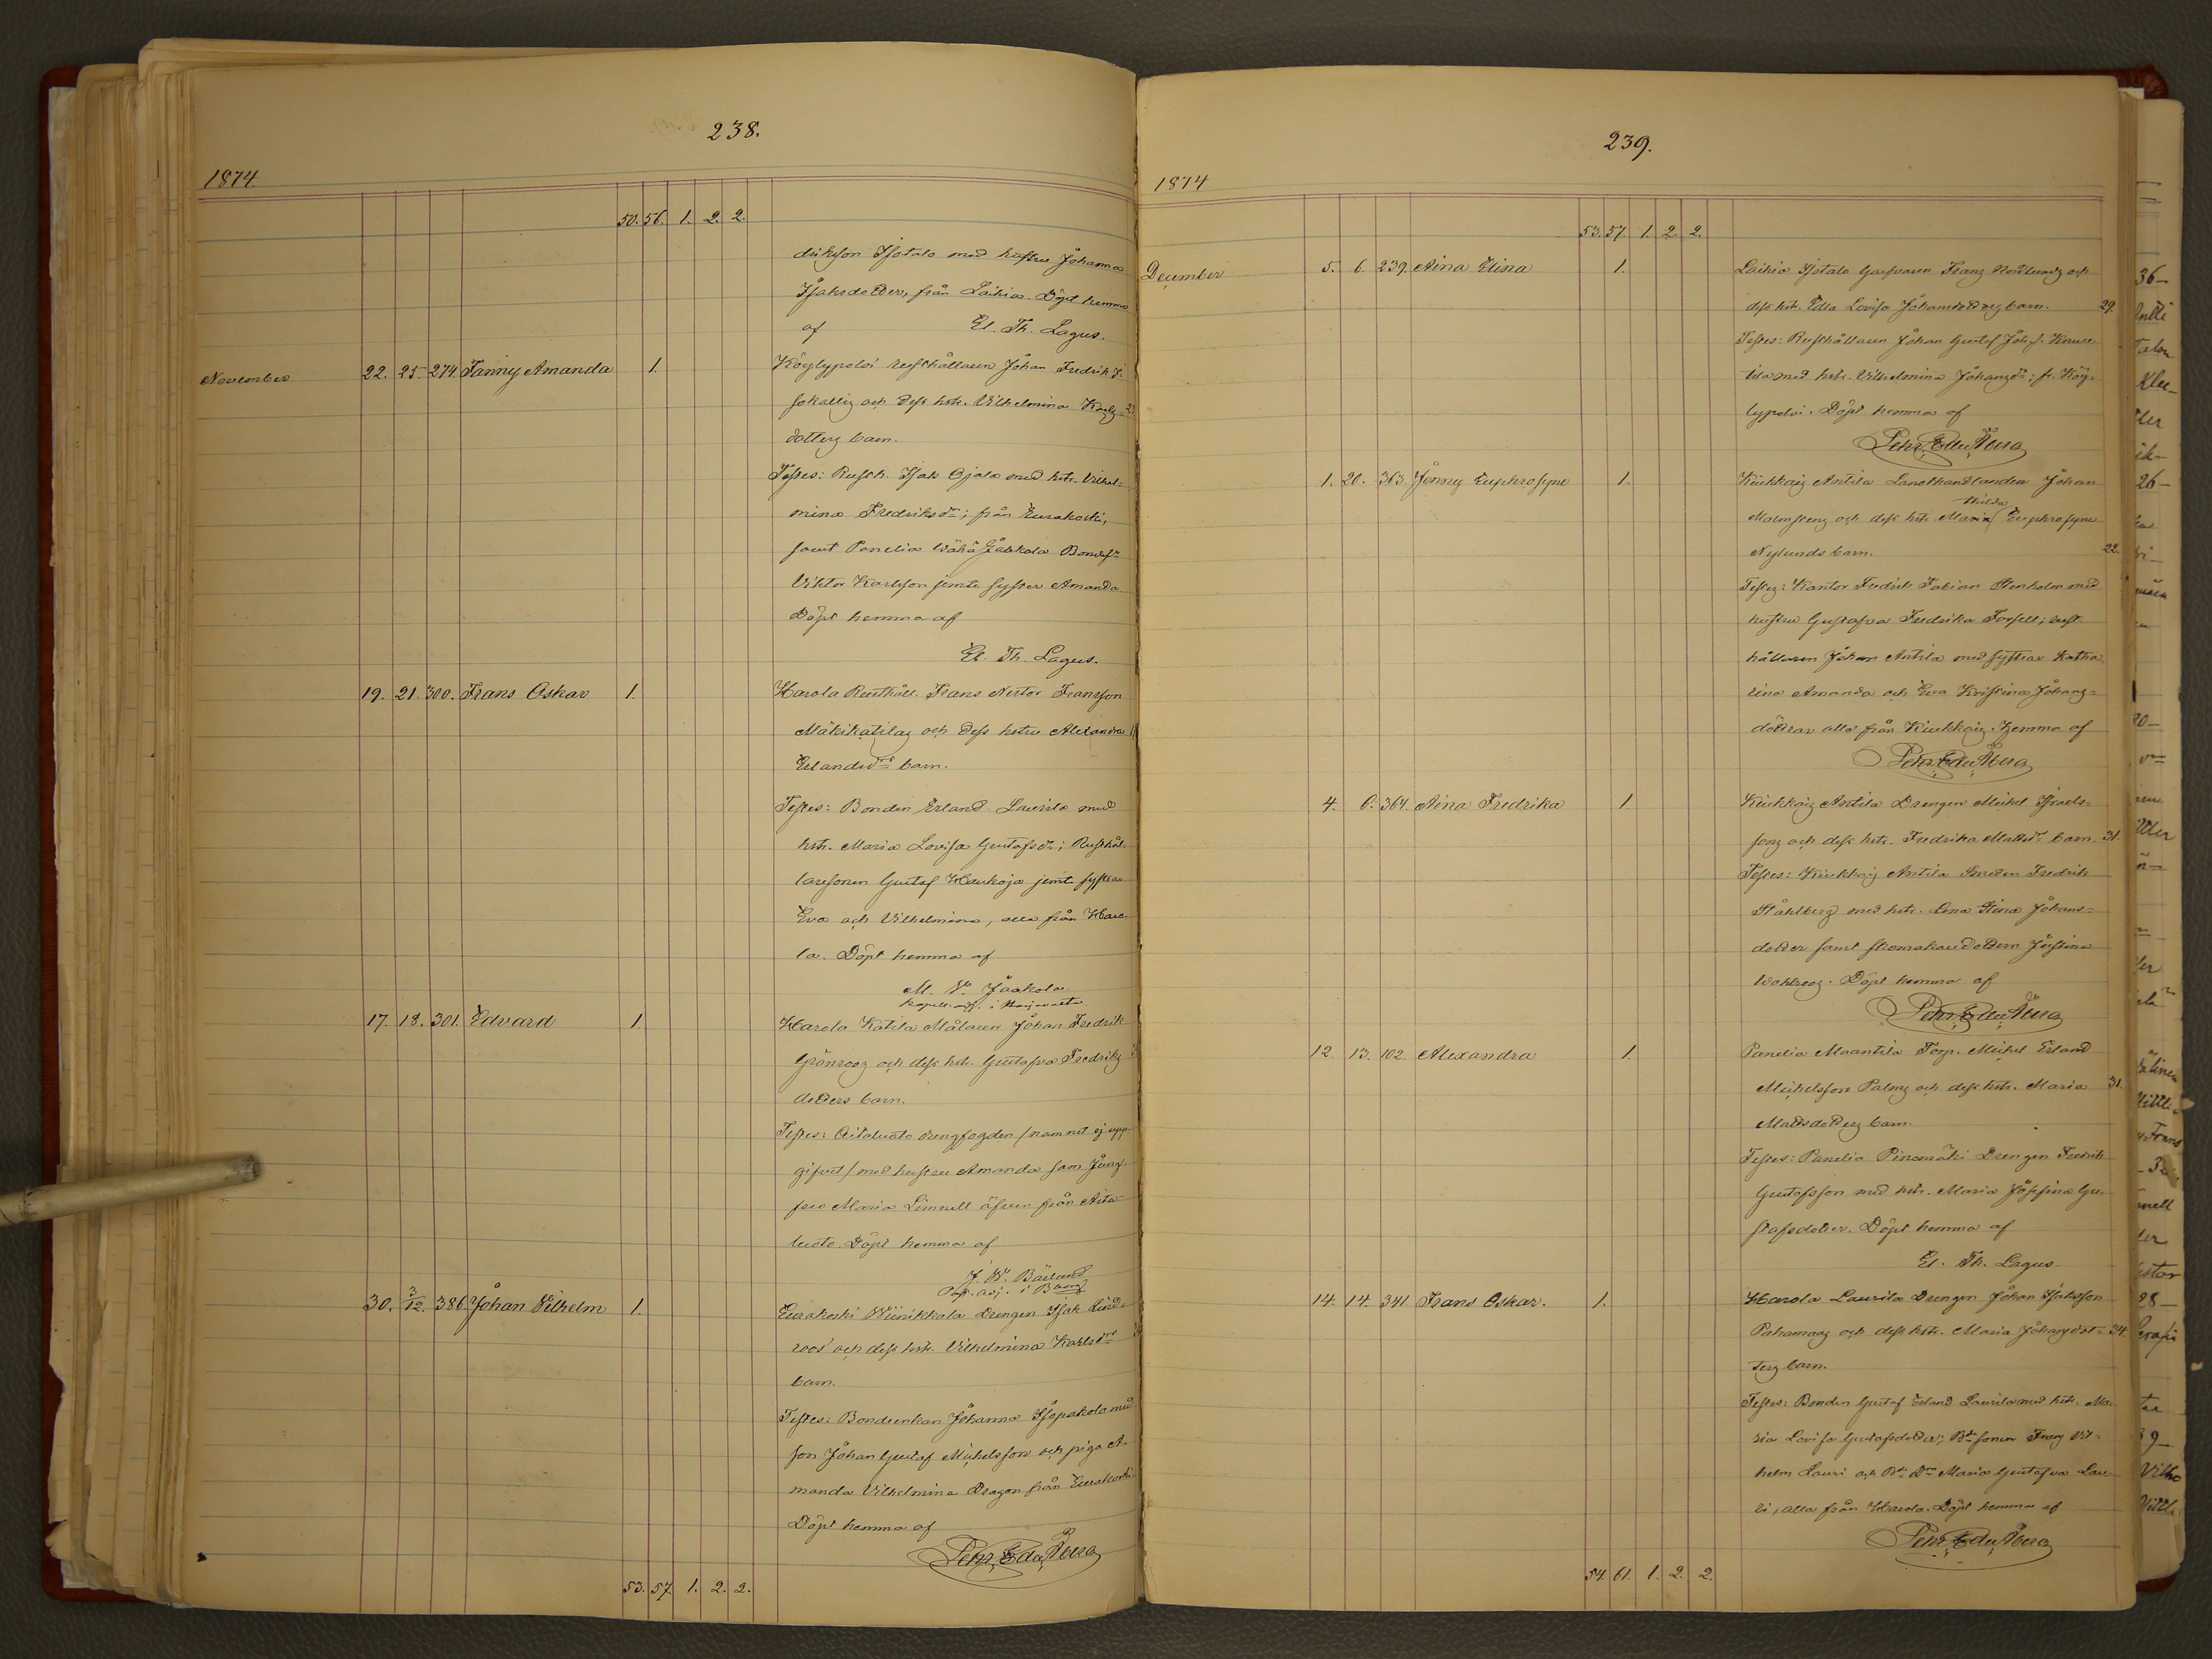 238.
1874
50. 56. 1. 2. 2.
driksson Isotalo med hustru Johanna
Isaksdotter, från Laihia. Döpt hemma
af El. Th. Lagus.
November 22. 25. 274. Fanny Amanda 1. Köylypolvi rusthållaren Johan Fredrik I-
sokallis och dess hstr. Vilhelmina Karls-
dotters barn.
Testes: Rusth. Isak Ojala med hstr. Vilhel-
mina Fredriksdr; från Eurakoski,
samt Panelia Wähä Jaakola Bondes.
Viktor Karlsson jemte syster Amanda.
Döpt hemma af
El. Th. Lagus.
19. 21. 300. Frans Oskar 1. Harola Rusthåll. Frans Nestor Fransson
Mäkikatilas och dess hstru Alexandra
Erlandsdrs barn.
Testes: Bonden Erland Laurila med
hstr. Maria Lovisa Gustafsdr; Rusthål-
laresonen Gustaf Haukoja jemte systrar
Eva och Vilhelmina, alla från Haro-
la. Döpt hemma af
M. W. Jaakola
kapell. adj. i Harjavalta
17. 18. 301. Edvard 1. Harola Katila Målaren Johan Fredrik
Grönroos och dess hstr. Gustafva Fredriks
dotters barn.
Testes: Aitaluoto drengfogden /namnet ej upp-
gifvet/ med hustru Amanda sam Jung-
fru Maria Limnell äfven från Aita-
luoto. Döpt hemma af
J. W. Bärlund
30. 3/12. 386. Johan Vilhelm 1. Eurakoski Wiinikkala Drengen Isak Lind-
roos och dess hstr. Vilhelmina Karlsdrs
barn.
Testes: Bondeenkan Johanna Isopakola med
son Johan Gustaf Michelsson och piga A-
manda Vilhelmina Dragon från Eurakoski.
Döpt hemma af
Pehr Edv. Åberg
53. 57. 1. 2. 2.
239.
1874
53. 57. 1. 2. 2.
December 5. 6. 239. Aina Elina 1. Laihia Isotalo Garfvaren Frans Nordlunds och
dess hstr. Edla Lovisa Johansdotters barn. 29.
Testes: Rusthållaren Johan Gustaf Johs. Knuu-
tila med hstr. Vilhelmina Johansdr; fr. Köy-
lypolvi. Döpt hemma af
Pehr Edv. Åberg
1. 20. 363. Jenny Euphrosyne 1. Kiukkais Antila Landthandlanden Johan
Malmsteng och dess hstr. Maria Thilda Euphrosyne
Nylunds barn. 22.
Testes: Kantor Fredrik Fabian Stenholm med
hustru Gustafva Fredrika Forsell; rust-
hållaren Johan Antila med systrar Katha-
rina Amanda och Eva Kristina Johans-
döttrar alla från Kiukkais. Hemma af
Pehr Edv. Åberg
4. 6. 364. Aina Fredrika 1. Kiukkais Antila Drengen Michel Israels-
sons och dess hstr. Fredrika Mattsdrs barn. 31.
Testes: Kiukkais Antila Smeden Fredrik
Ståhlberg med hstr. Lena Stina Johans-
dotter samt skomakaredottern Justina
Wahlroos. Döpt hemma af
Pehr Edv. Åberg
12. 13. 102. Alexandra 1. Panelia Maantila Torp. Michel Erland
Michelsson Palmg och dess hstr. Maria 31.
Mattsdotters barn.
Testes: Panelia Pinomäki Drengen Fredrik
Gustafsson med hstr. Maria Josefina Gu-
stafsdotter. Döpt hemma af
El. Th. Lagus.
14. 14. 341. Frans Oskar. 1. Harola Laurila Drengen Johan Isaksson
Pahamaas och dess hstr. Maria Johansdot- 24.
ters barn.
Testes: Bonden Gustaf Erland Laurila med hstr. Ma-
ria Lovisa Gustafsdotter; Bdesonen Frans Vil-
helm Lauri och Bde Dr Maria Gustafva Lau-
ri, alla från Harola. Döpt hemma af
Pehr Edv. Åberg
54. 61. 1. 2. 2.